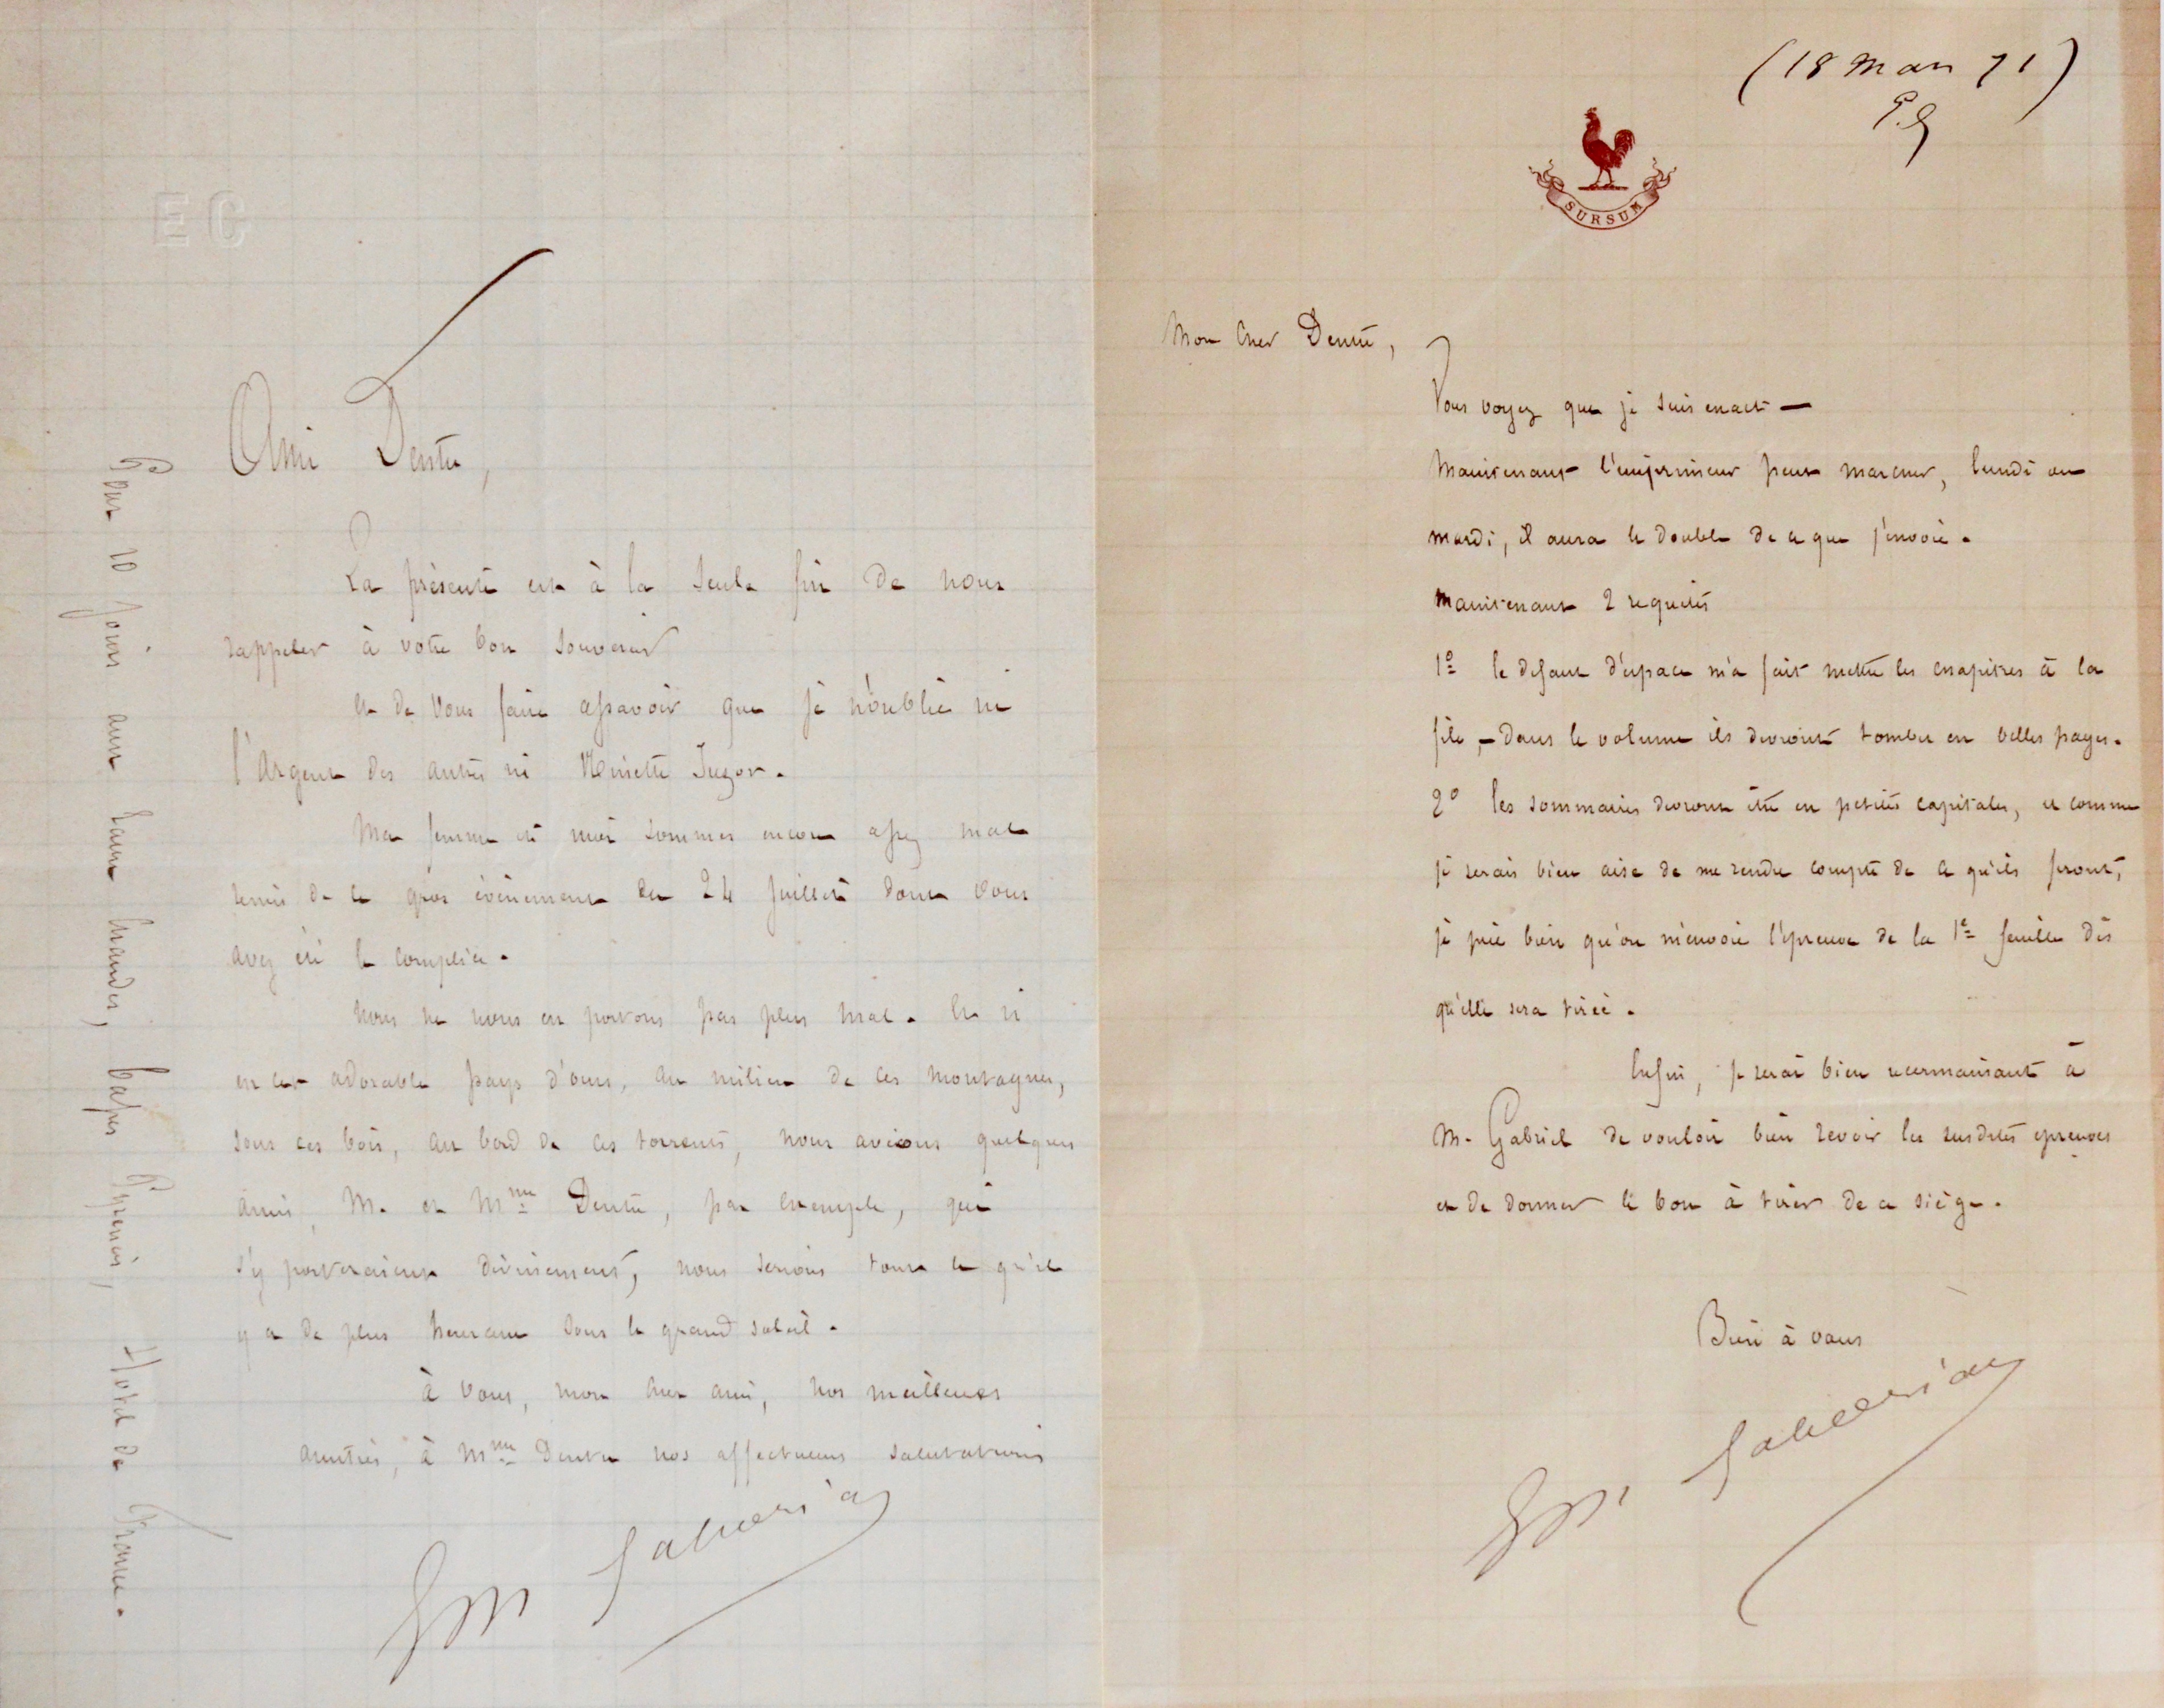 EC
Ami Dentu,
La présente est à la seule fin de nous
rappeler à votre bon souvenir
et de vous faire assavoir que je n'oublie ni
l'Argent des autres ni Ninette Suzor.
Ma femme et moi sommes encore assez mal
remis de ce gros évènement du 24 juillet dont vous
avez été le complice.
Nous ne nous en portons pas plus mal. Et si
en cet adorable pays d'ours, au milieu de ces montagnes,
sous ces bois, au bord de ces torrents, nous avions quelques
amis, M. et Mme Dentu, par exemple, qui
s'y porteraient divinement, nous serions tout ce qu'il
y a de plus heureux sous le grand soleil.
à vous, mon cher ami, nos meilleures
amitiés, à Mme Dentu nos affectueuses salutations
Em Gaboriau
Pour 10 jours aux Eaux Chaudes, Basses Pyrénées, Hôtel de France.
(18 Mars 71)
SURSUM
Mon cher Dentu,
Vous voyez que je suis exact —
Maintenant l'imprimeur peut marcher, lundi ou
mardi, il aura le double de ce que j'envoie.
Maintenant 2 requêtes
1º le défaut d'espace m'a fait mettre les chapitres à la
file, — Dans le volume ils devront tomber en belles pages.
2º les sommaires devront être en petites capitales, et comme
je serais bien aise de me rendre compte de ce qu'ils feront,
je prie bien qu'on m'envoie l'épreuve de la 1e feuille dès
qu'elle sera tirée.
Enfin, je serai bien reconnaissant à
M. Gabriel de vouloir bien revoir les susdites epreuves
et de donner le bon à tirer de ce siège.
Bien à vous
Em Gaboriau